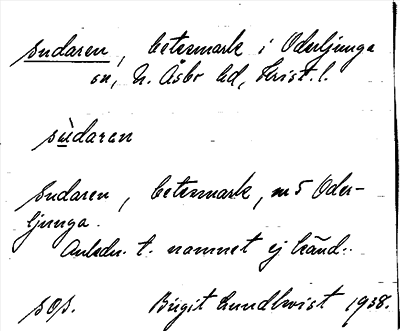 sudaren, betesmark i Oderljunga
sn, N. Åsbo hd, Krist. l.
sùdaren
sudaren, betesmark, m 5 Oder-
ljunga.
Anledn. t. namnet ej känd.
sOs. Birgit Lundkvist 1938.